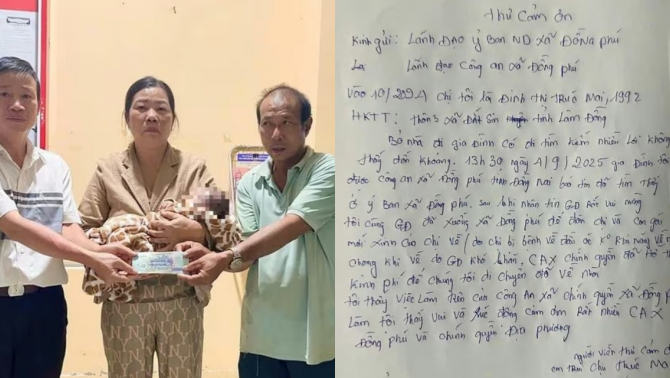 Thư Cảm ơn
Kính gửi: Lãnh Đạo ủy Ban ND xã ĐỒNG phú
Lãnh đạo công an xã Đồng phú
VÀO 10/2024 Chị tôi là Đinh Thị Trúc Mai, 1992
HKTT: thôn 3 xã Đất tỉnh Lâm Đồng
Bỏ nhà đi gia Đình có đi tìm kiếm nhiều lời không
thấy 13h30 ngày 4/9/2025 gia Đình tôi
được công an xã Đồng phú tỉnh Đồng Nai báo tin đã tìm thấy
ở ủy Ban xã Đồng phú, sau khi nhân tin GĐ Rất vui mừng
tôi cùng GĐ đi xuống xã Đồng phú để đón chị và Con gái
mới xinh của chị về (do chị bị bệnh về đầu óc
khi về do GĐ khó khăn, CAX chính quyền hỗ
kinh phí để chúng tôi di chuyển về nhà
tôi thấy việc làm trên của công An xã chính quyền xã Đồng
làm tôi thấy vui và xúc động cảm ơn Rất nhiều CAX
Đồng phú và chính quyền Địa phương
người viết thư cảm
em trai Chu Thúc